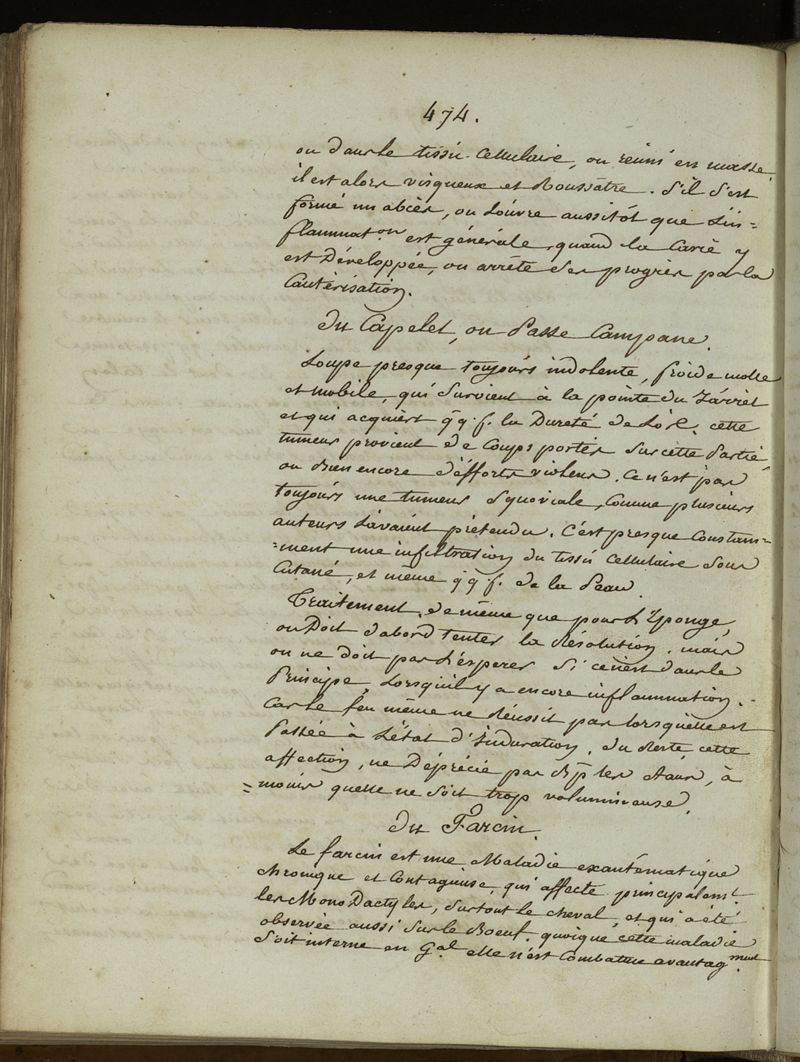 474.
ou dans le tissu Cellulaire, ou réuni en masse
il est alors visqueux et Roussatre. S'il s'est
formé un abcès, on l'ouvre aussitôt que l'in=
flammat.on est générale, quand la Carie y
est Développée, on arrête ses progrès par la
Cautérisation.
Du Capelet, ou Passe Campane.
Loupe presque toujours indolente, froide molle
et mobile, qui survient à la pointe du Jarret
et qui acquiert q̃q. f. la Dureté de l'os. cette
tumeur provient de Coups portés sur cette Partie
ou Bien encore d'éfforts violens. Ce n'est pas
toujours une tumeur Synoviale, Comme plusieurs
auteurs l'avaient prétendu. C'est presque Constam=
=ment une infiltration du tissu Cellulaire Sous
Cutané, et même q̃q. f. de la Peau.
Traitement, de même que pour L'Eponge,
on Doit d'abord tenter la Résolution, mais
on ne doit pas L'ésperer Si ce n'est dans le
Principe, Lorsqu'il y a encore inflammation.
Car le feu même ne Réussit pas lorsqu'elle est
Passée à L'état d'Induration. du Reste cette
affection, ne Déprécie pas les à
= moins quelle ne soit trop volumineuse.
Du Farcin.
Le farcin est une Maladie exantématique
chronique et Contagieuse, qui affecte principalem.t
les Mono Dactyles, surtout le cheval, et qui a été
observée aussi Sur le Boeuf. quoique cette maladie
Soit interne en G.al elle n'est Combattue avantag.ment